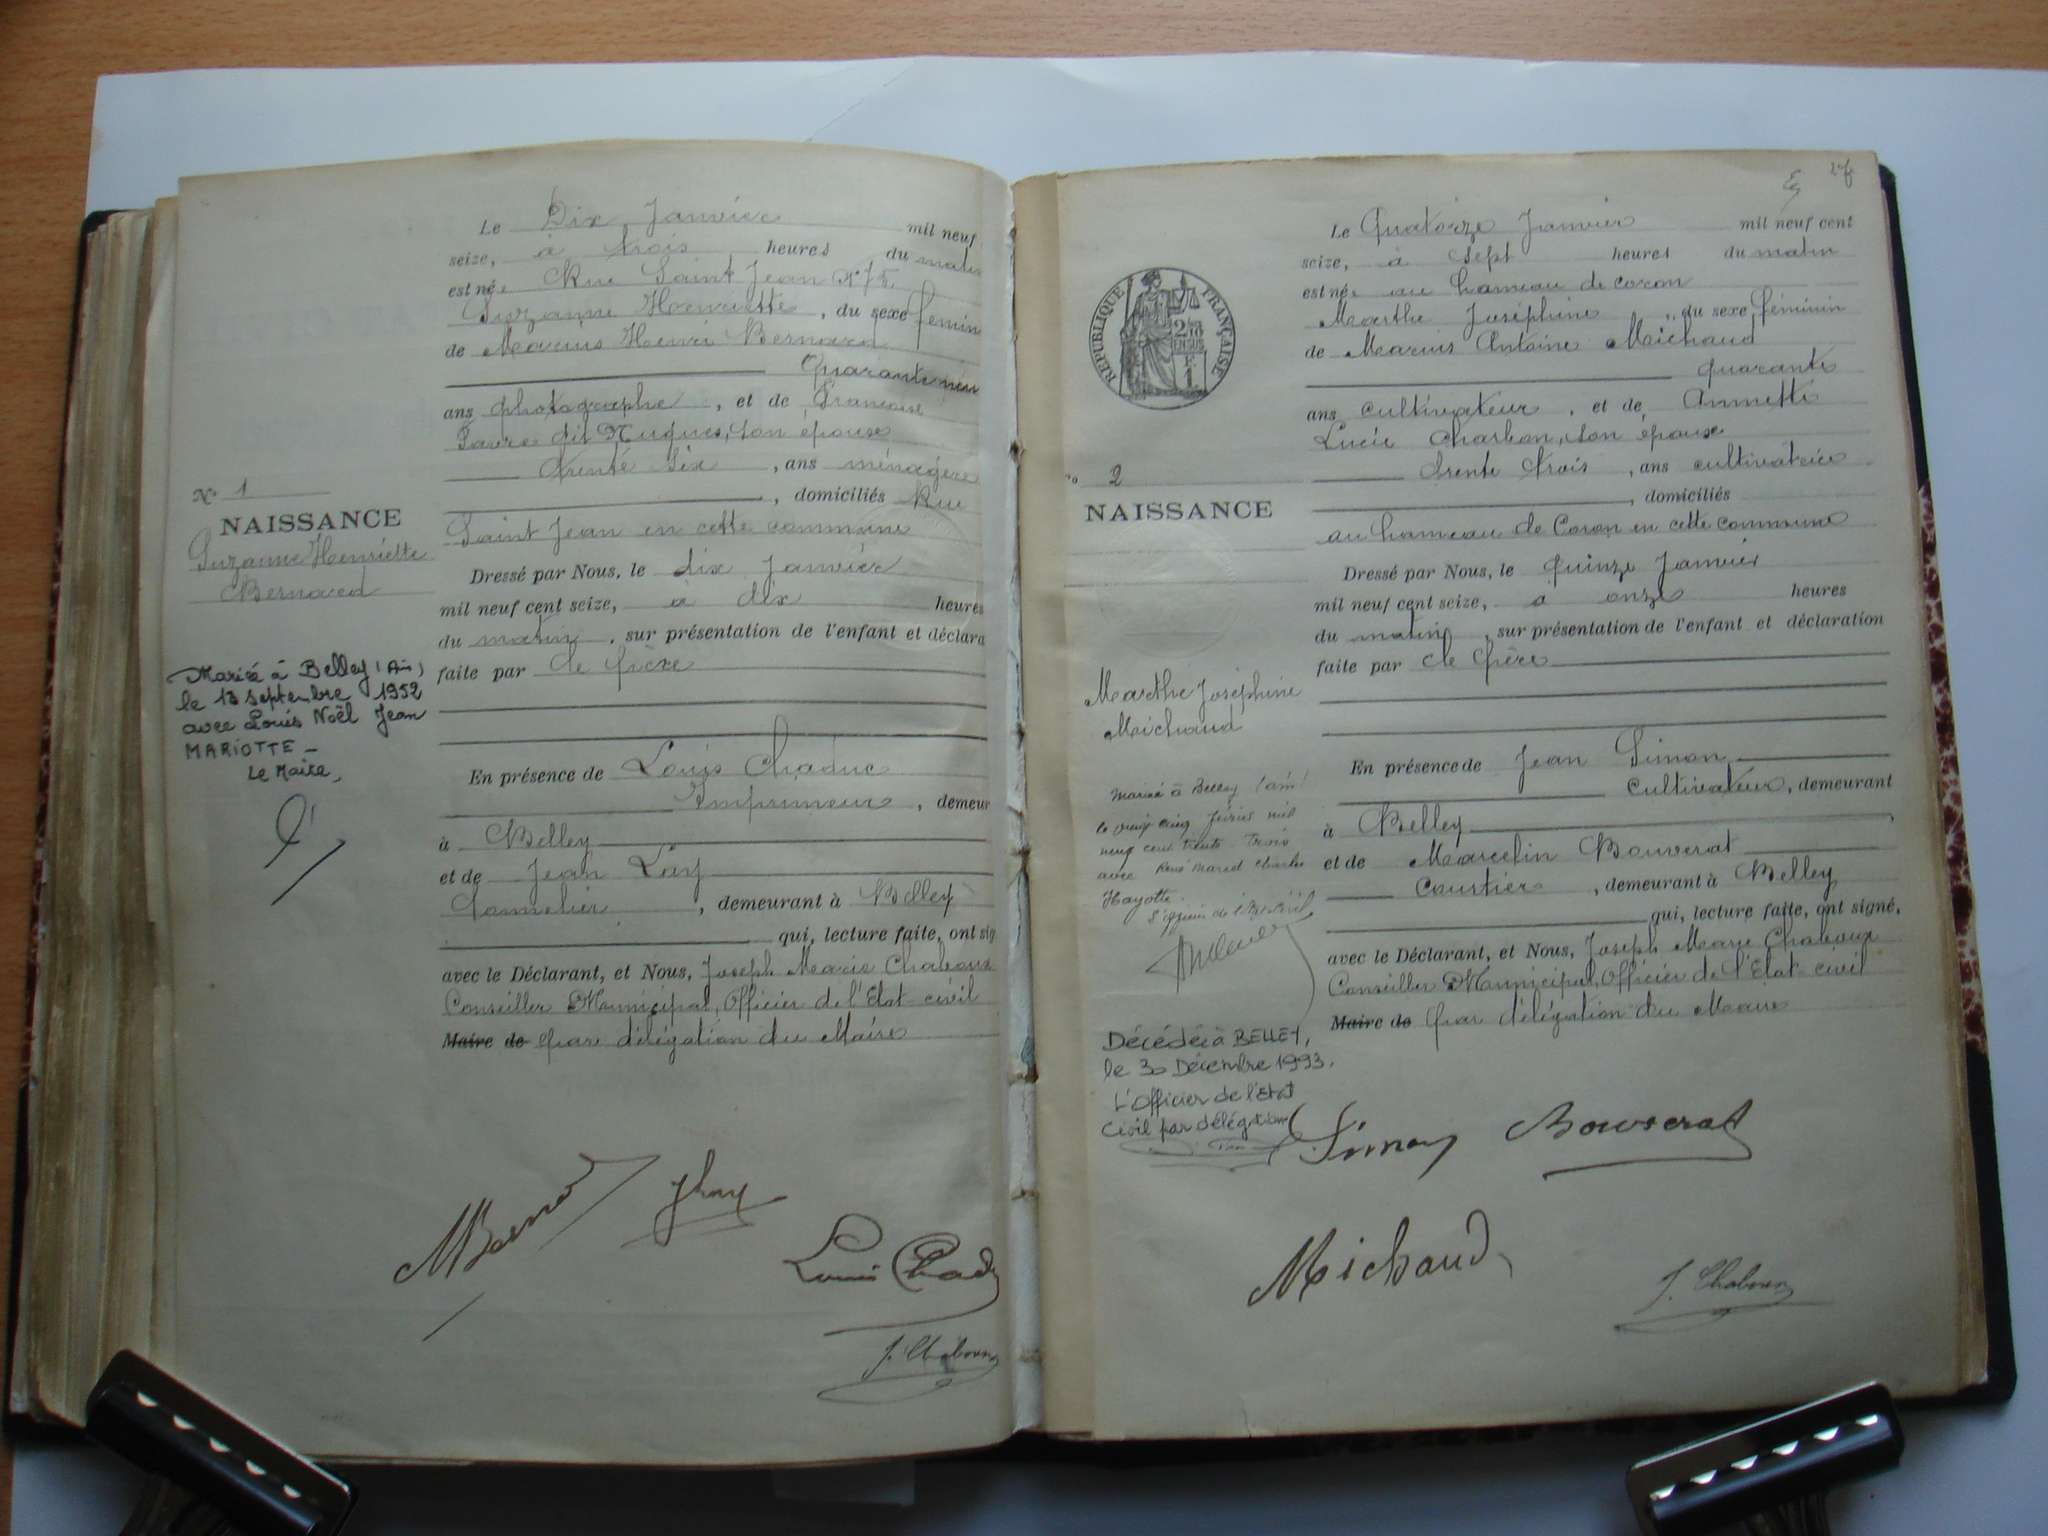 Le Dix Janvier mil neuf
seize, à trois heures du matin
est née Rue Saint Jean N° 75
Suzanne Henriette, du sexe féminin
de Marius Henri Bernard
Quarante neuf
ans photographe, et de Françoise
Favre dit Nugues, son épouse
trente six, ans ménagère
, domiciliés Rue
Saint Jean en cette commune
N° 1
NAISSANCE
Suzanne Henriette
Bernard
Dressé par Nous, le dix Janvier
mil neuf cent seize, à dix heures
du matin, sur présentation de l'enfant et déclara
faite par le père
Mariée à Belley (Ain)
le 13 septembre 1952
avec Louis Noël Jean
MARIOTTE -
Le Maire,
En présence de Louis Chaduc
Imprimeur, demeur
à Belley
et de Jean
, demeurant à Belley
qui, lecture faite, ont sig
avec le Déclarant, et Nous, Joseph Marie Chaboux
Conseiller Municipal, Officier de l'Etat-civil
Maire de par délégation du Maire
Louis Chad
J. Chaboux
Le Quatorze Janvier mil neuf cent
seize, à sept heures du matin
est née au hameau de coron
Marthe Joséphine, du sexe féminin
de Marius Antoine Michaud
quarante
ans cultivateur, et de Annette
Lucie Charbon, son épouse
trente trois, ans cultivatrice
, domiciliés
au hameau de Coron en cette commune
REPUBLIQUE FRANÇAISE
2
NAISSANCE
Marthe Joséphine
Michaud
Dressé par Nous, le Quinze Janvier
mil neuf cent seize, à onze heures
du matin, sur présentation de l'enfant et déclaration
faite par le père
Mariée à Belley (ain)
le vingt cinq février mil
neuf cent trente trois
avec René Marcel Charles
Hayotte.
L'officier de l'Etat civil
Décédée à BELLEY,
le 30 Décembre 1993.
L'Officier de l'Etat
Civil par délégation
En présence de Jean Simon
Cultivateur, demeurant
à Belley
et de Marcelin Bouverat
Courtier, demeurant à Belley
qui, lecture faite, ont signé,
avec le Déclarant, et Nous, Joseph Marie Chaboux
Conseiller Municipal, Officier de l'Etat-civil
Maire de par délégation du Maire
Simon Bouverat
Michaud
J. Chaboux